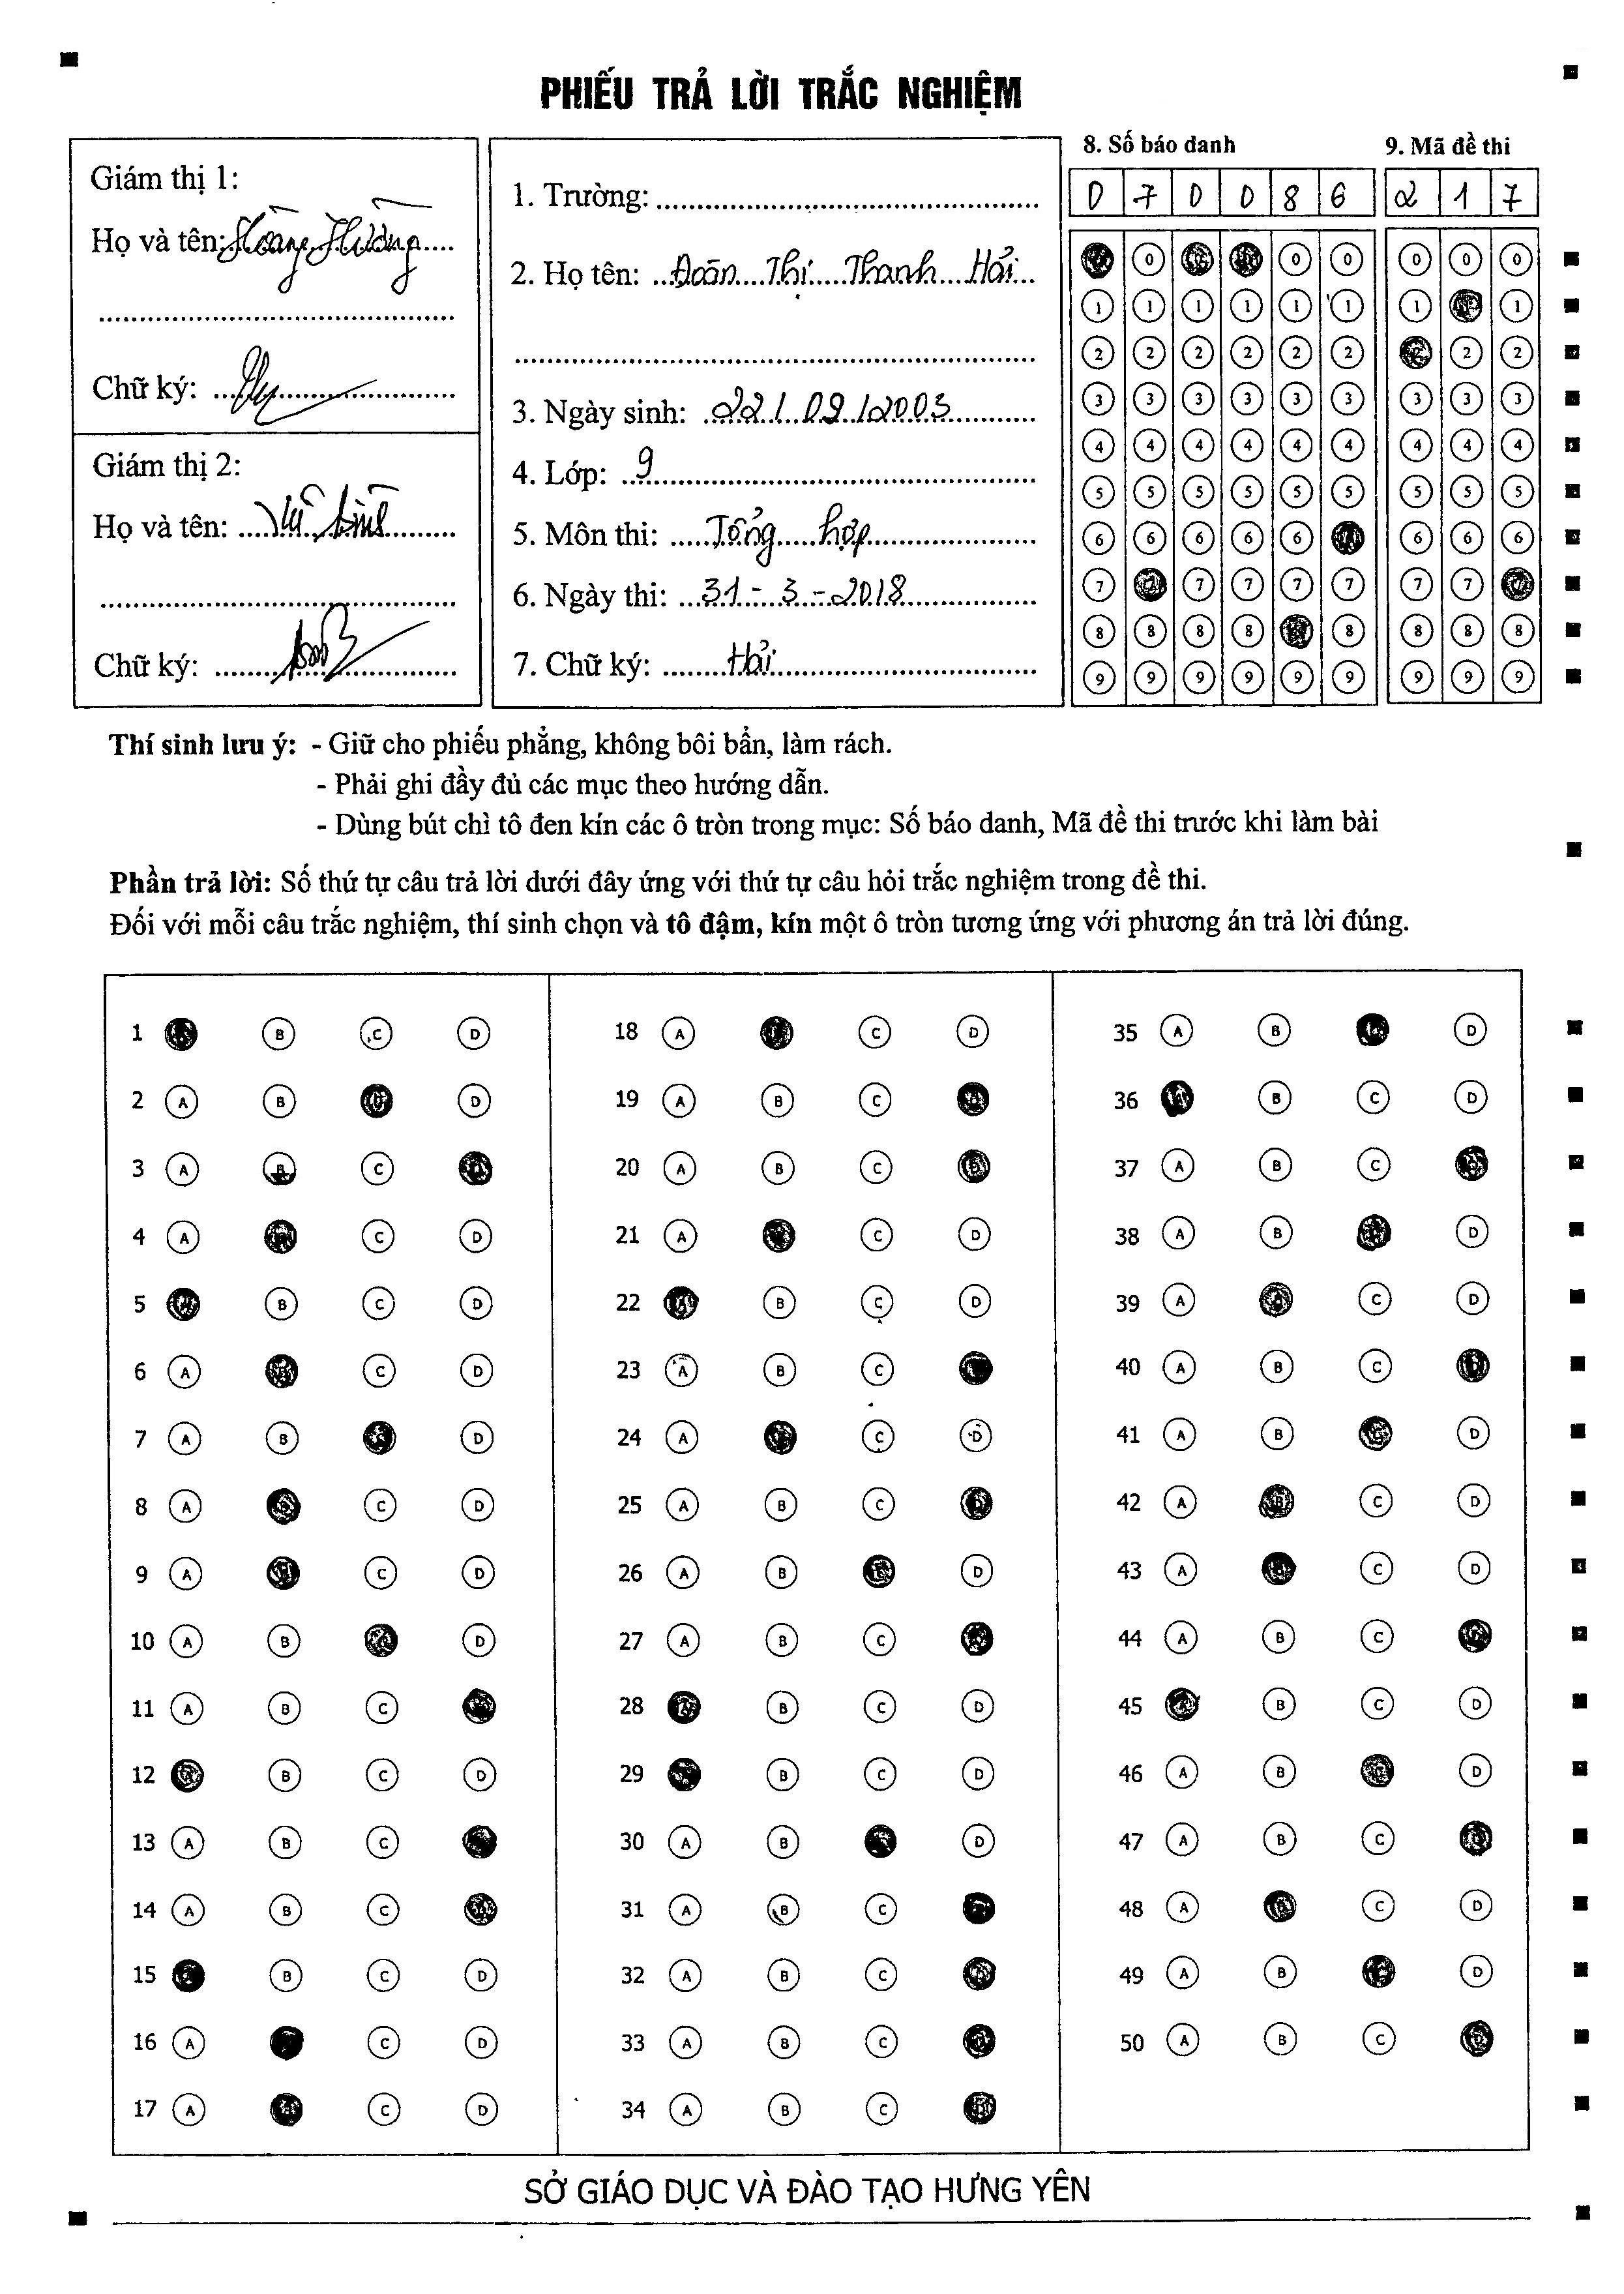 PHIẾU TRẢ LỜI TRẮC NGHIỆM
Giám thị 1:
Họ và tên: Hoàng Hường
Chữ ký:
Giám thị 2:
Họ và tên:
Chữ ký:
1. Trường:
2. Họ tên: Đoàn Thị Thanh Hải
3. Ngày sinh: 22/09/2003
4. Lớp: 9
5. Môn thi: Tổng hợp
6. Ngày thi: 31-3-2018
7. Chữ ký: Hải
8. Số báo danh
0 7 0 0 8 6
9. Mã đề thi
2 1 7
0 0 0 0 0 0
1 1 1 1 1 1 1 1
2 2 2 2 2 2 2 2
3 3 3 3 3 3 3 3 3
4 4 4 4 4 4 4 4 4
5 5 5 5 5 5 5 5 5
6 6 6 6 6 6 6 6
7 7 7 7 7 7 7
8 8 8 8 8 8 8 8
9 9 9 9 9 9 9 9 9
Thí sinh lưu ý: - Giữ cho phiếu phẳng, không bôi bẩn, làm rách.
- Phải ghi đầy đủ các mục theo hướng dẫn.
- Dùng bút chì tô đen kín các ô tròn trong mục: Số báo danh, Mã đề thi trước khi làm bài
Phần trả lời: Số thứ tự câu trả lời dưới đây ứng với thứ tự câu hỏi trắc nghiệm trong đề thi.
Đối với mỗi câu trắc nghiệm, thí sinh chọn và tô đậm, kín một ô tròn tương ứng với phương án trả lời đúng.
1 B C D
2 A B D
3 A B C
4 A C D
5 B C D
6 A C D
7 A B D
8 A C D
9 A C D
10 A B D
11 A B C
12 A B C D
13 A B C
14 A B C
15 B C D
16 A C D
17 A C D
18 A C D
19 A B C
20 A B C
21 A C D
22 A B C D
23 A B C
24 A C D
25 A B C D
26 A B D
27 A B C
28 B C D
29 B C D
30 A B D
31 A B C
32 A B C
33 A B C
34 A B C
35 A B D
36 B C D
37 A B C
38 A B D
39 A C D
40 A B C
41 A B D
42 A B C D
43 A C D
44 A B C
45 B C D
46 A B D
47 A B C
48 A C D
49 A B D
50 A B C
SỞ GIÁO DỤC VÀ ĐÀO TẠO HƯNG YÊN